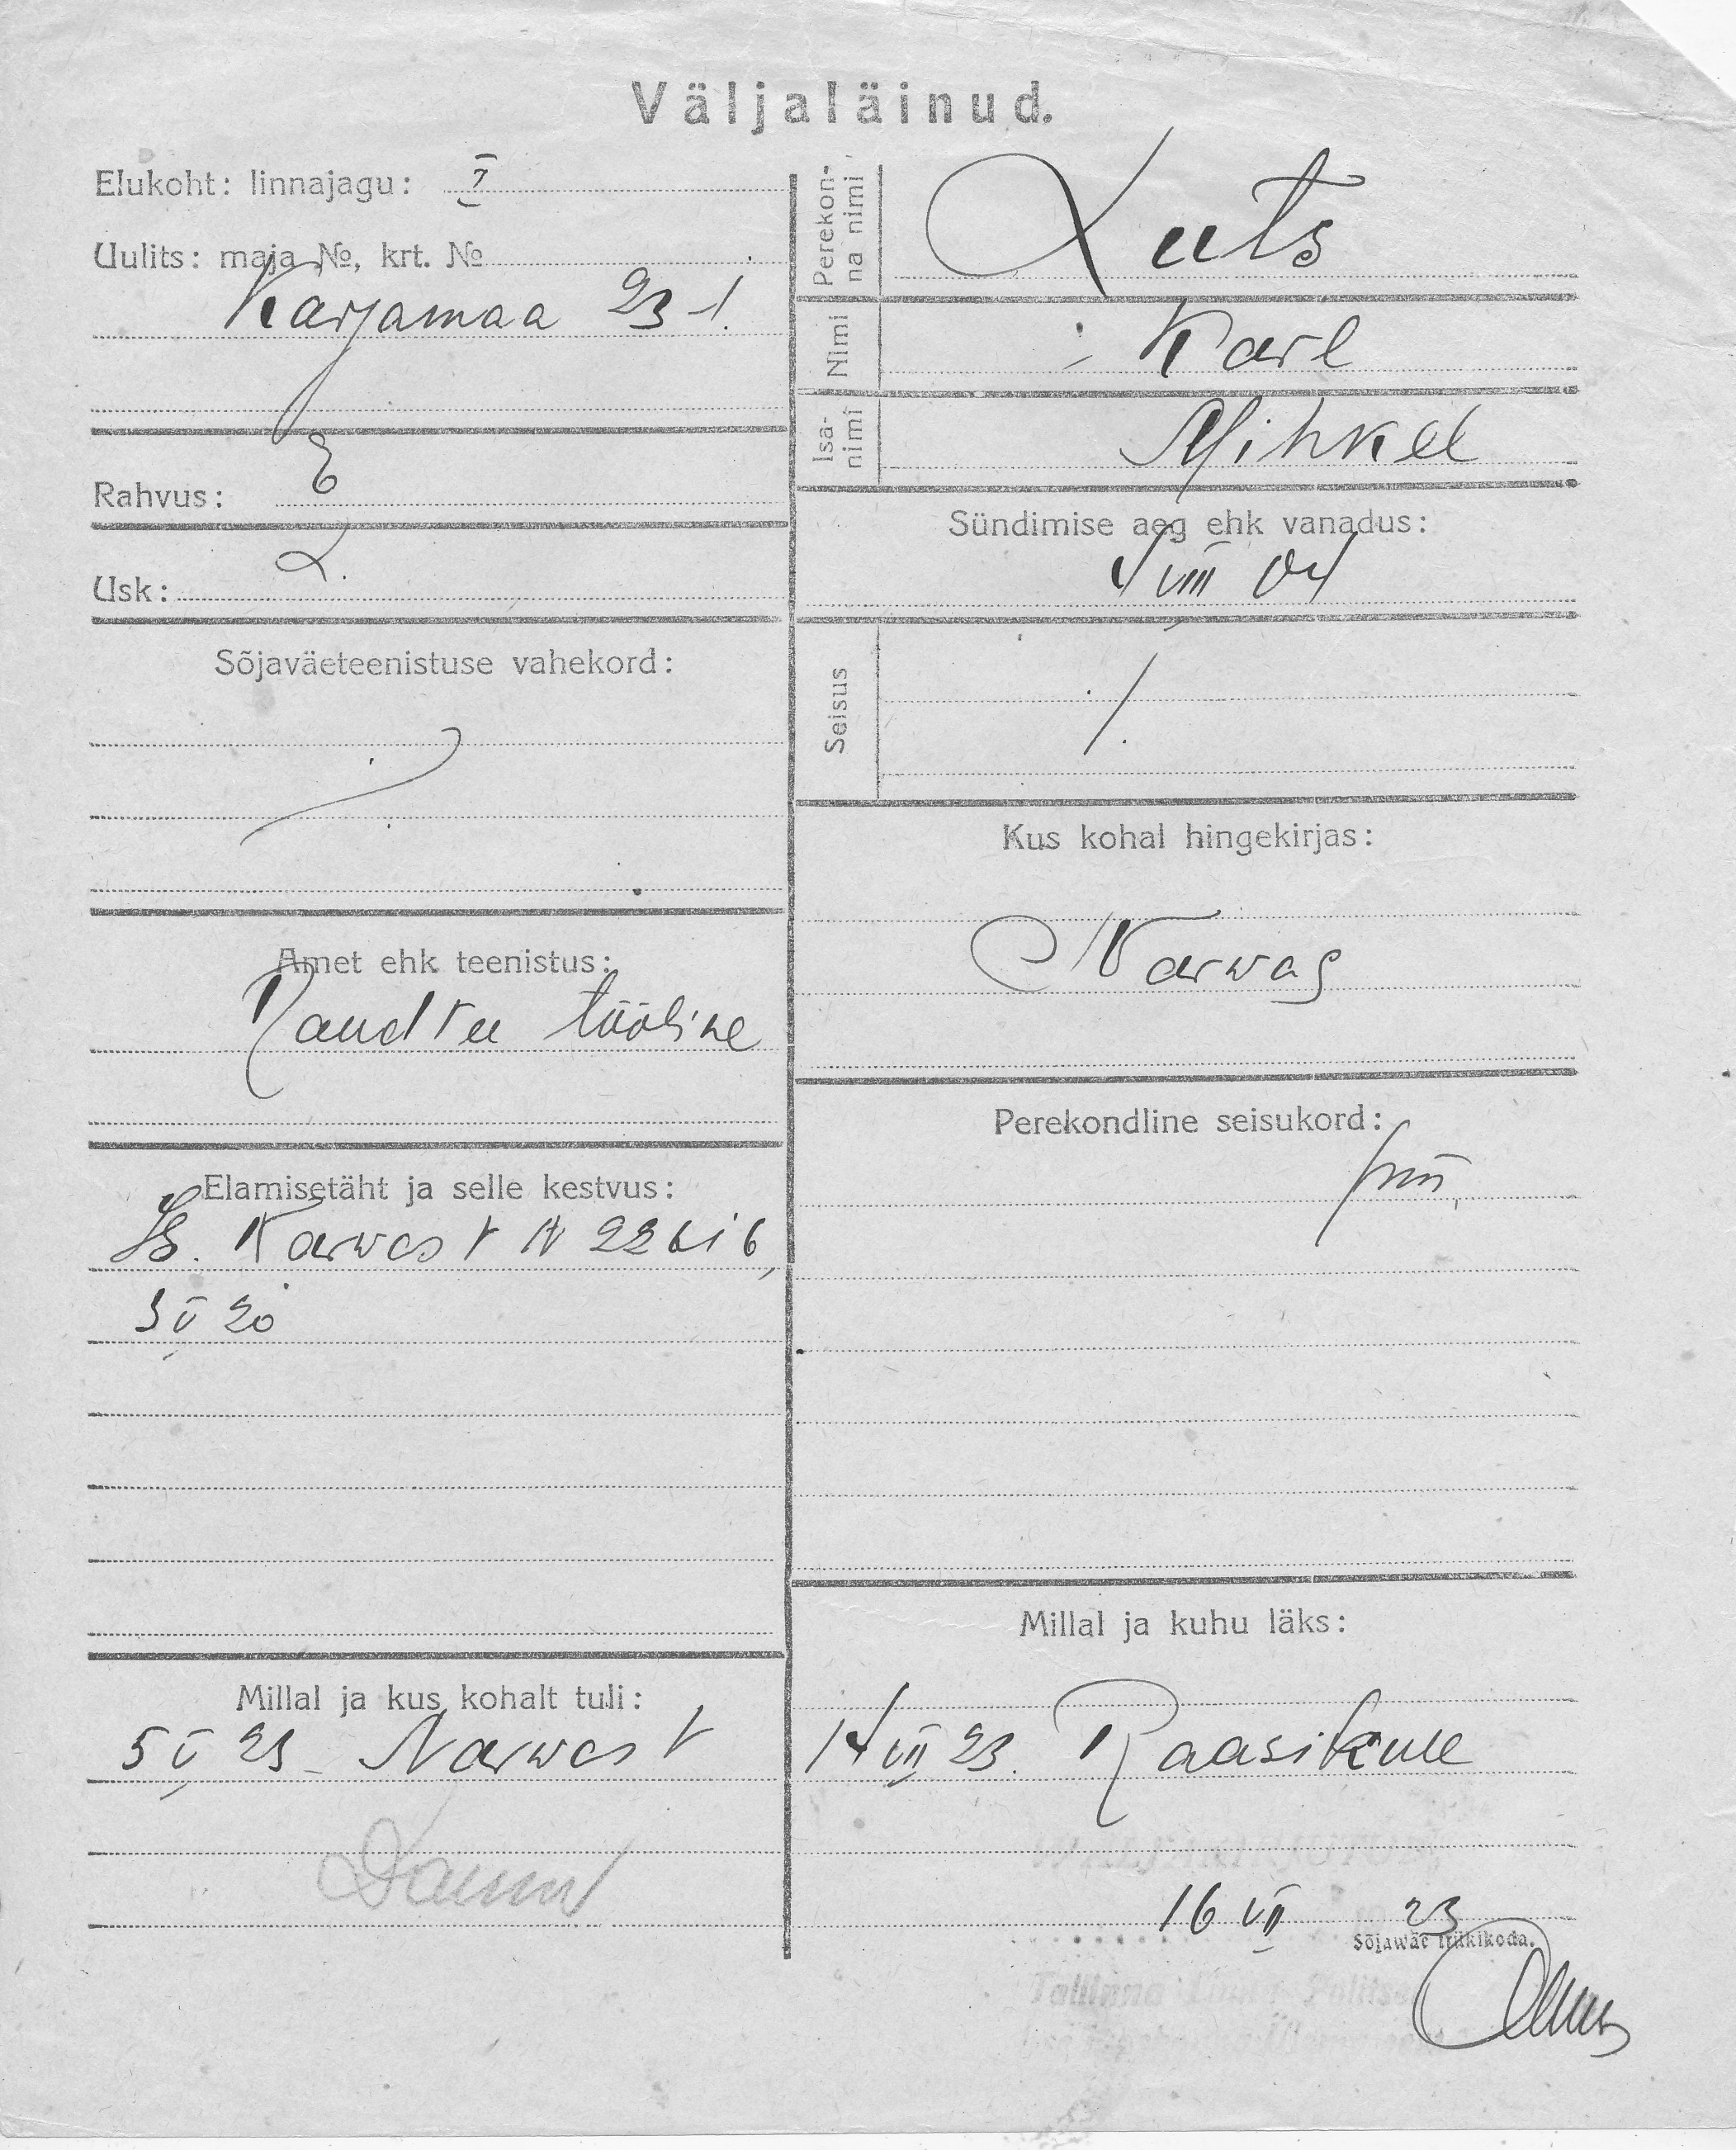 Väljaläinud.
Elukoht: linnajagu: I
Uulits: maja №, krt. №
Karjamaa 23-1.
Rahvus: E
Usk: L.
Sõjaväeteenistuse vahekord:
Amet ehk teenistus:
Raudtee tööline
Elamisetäht ja selle kestvus:
Narwast N 22616,
3 V 20
Millal ja kus kohalt tuli:
5 V 23 Narwast
Perekonna nimi
Luts
Nimi
Karl
Isanimi
Mihkel
Sündimise aeg ehk vanadus:
4 VIII 04
Seisus
/.
Kus kohal hingekirjas:
Narwas
Perekondline seisukord:
Millal ja kuhu läks:
14 VII 23. Raasikule
16 VII 23
Sõjawäe trükikoda.
Tallinna Linna Politsei